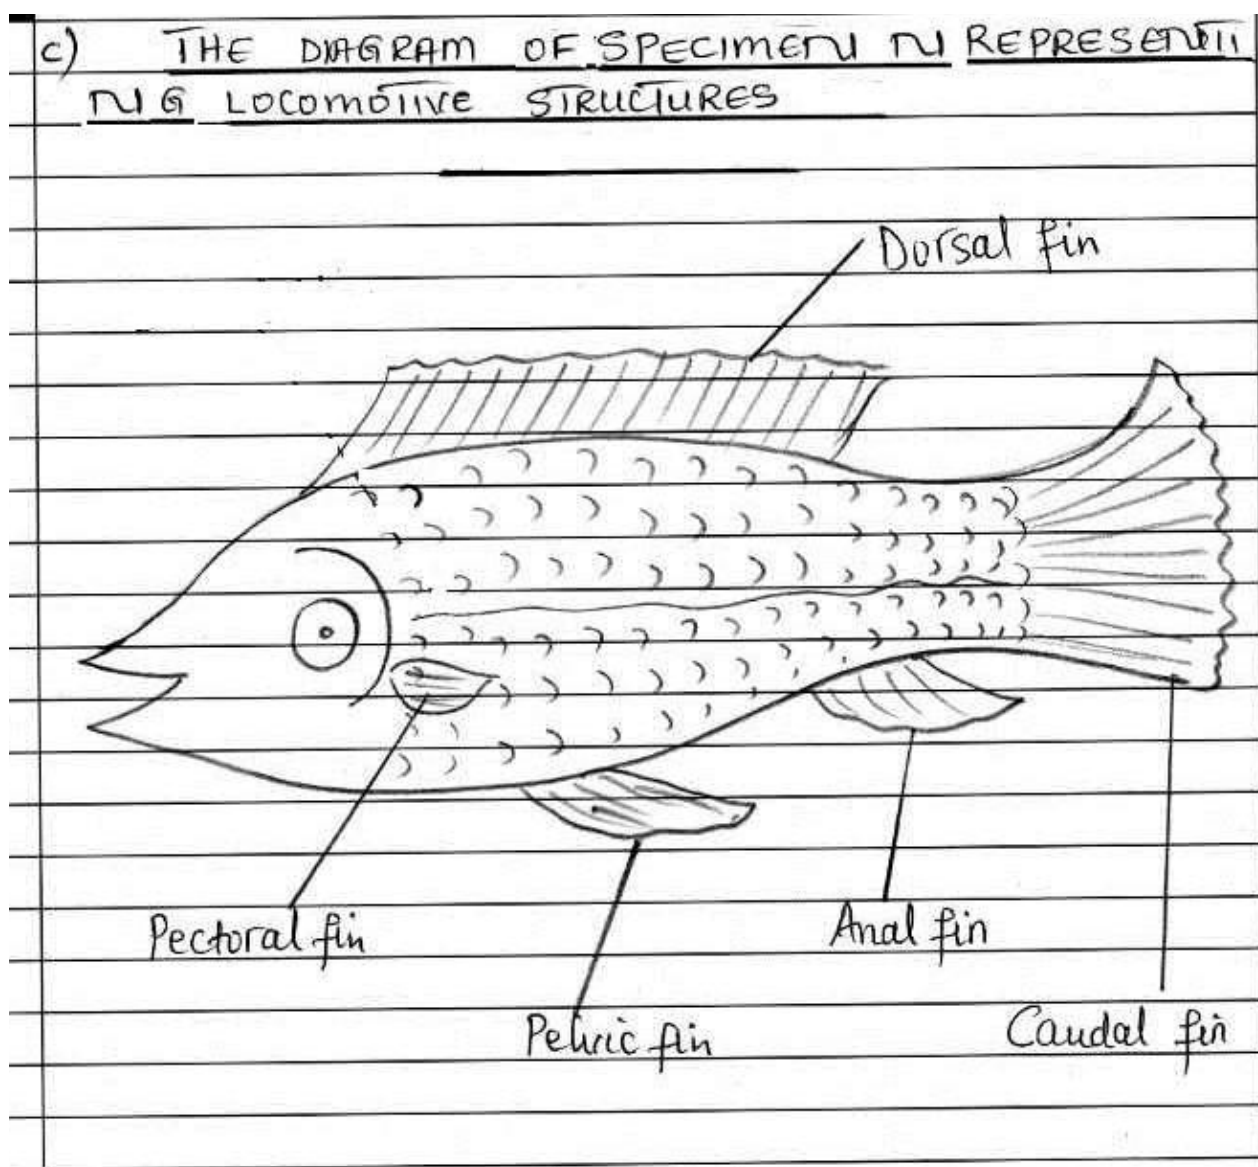 c) THE DIAGRAM OF SPECIMEN N REPRESENTI
NG LOCOMOTIVE STRUCTURES
Dorsal fin
Pectoral fin
Anal fin
Pelvic fin
Caudal fin